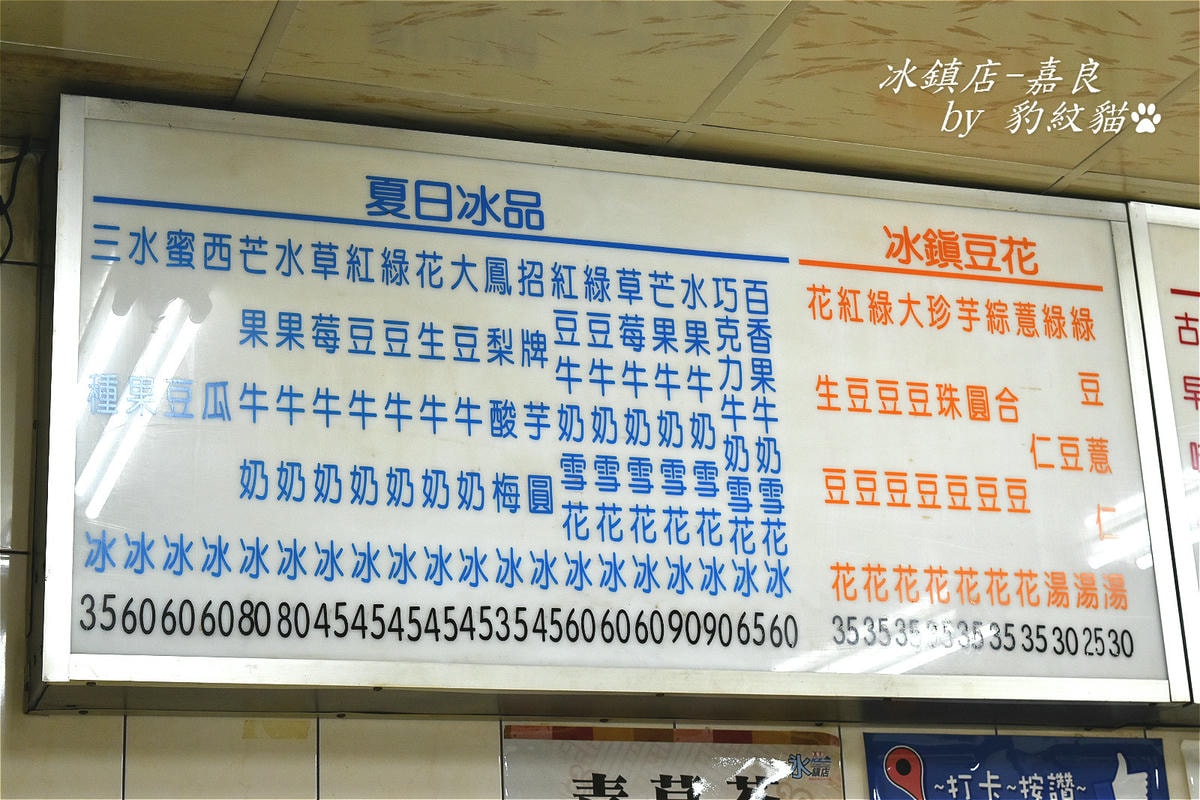 冰鎮店-嘉良
by 豹紋貓
夏日冰品
三種冰 35
水果冰 60
蜜豆冰 60
西瓜冰 60
芒果牛奶冰 80
水果牛奶冰 80
草莓牛奶冰 45
紅豆牛奶冰 45
綠豆牛奶冰 45
花生牛奶冰 45
大豆牛奶冰 45
鳳梨酸梅冰 35
招牌芋圓冰 45
紅豆牛奶雪花冰 60
綠豆牛奶雪花冰 60
草莓牛奶雪花冰 60
芒果牛奶雪花冰 90
水果牛奶雪花冰 90
巧克力牛奶雪花冰 65
百香果牛奶雪花冰 60
冰鎮豆花
花生豆花 35
紅豆豆花 35
綠豆豆花 35
大豆豆花 35
珍珠豆花 35
芋圓豆花 35
綜合豆花 35
薏仁湯 30
綠豆湯 25
綠豆薏仁湯 30
古早
冰鎮店
~打卡~按讚~